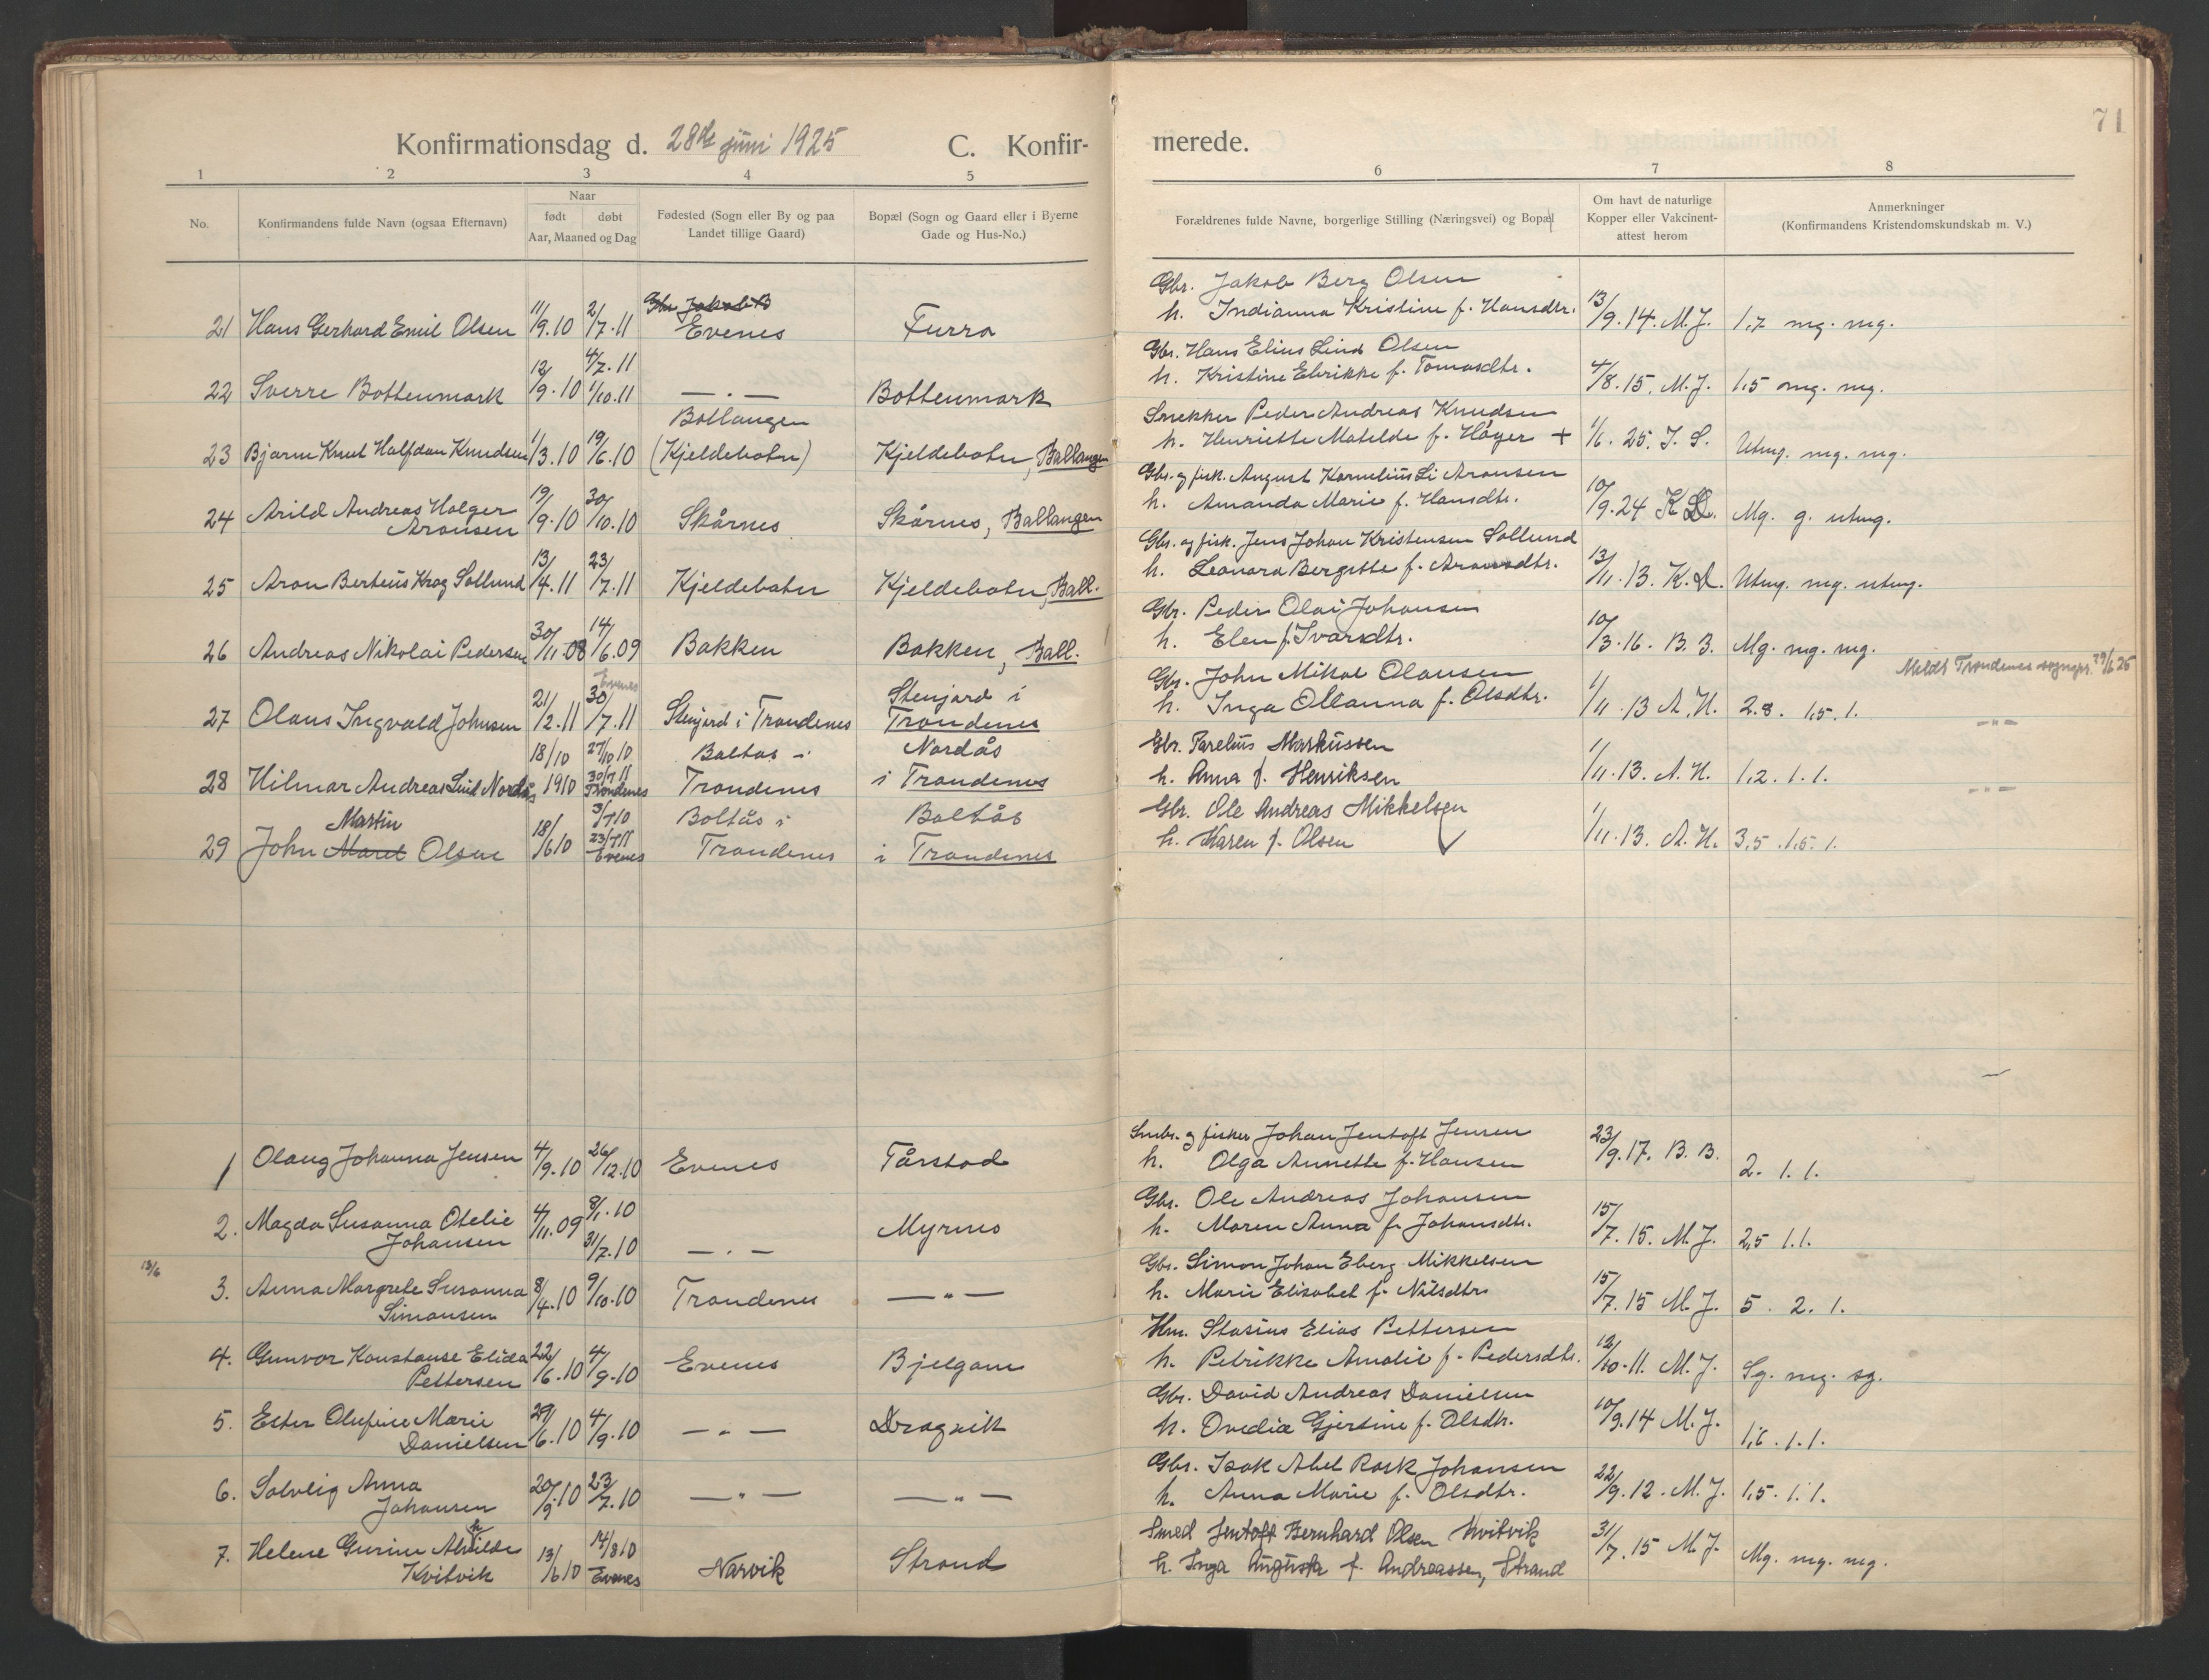 71
Konfirmationsdag d. 28de juni 1925 C. Konfir-
merede.
1 2 3 4 5
6 7 8
No.
Konfirmandens fulde Navn (ogsaa Efternavn)
Naar
født døbt
Aar, Maaned og Dag
Fødested (Sogn eller By og paa
Landet tillige Gaard)
Bopæl (Sogn og Gaard eller i Byerne
Gade og Hus-No.)
Forældrenes fulde Navne, borgerlige Stilling (Næringsvei) og Bopæl
Om havt de naturlige
Kopper eller Vakcinent-
attest herom
Anmerkninger
(Konfirmandens Kristendomskundskab m. V.)
Gbr. Jakob B
21 Hans Gerhard Emil Olsen 11/9.10 2/7.11 Evenes Furra
Gbr. Jakob Berg Olsen
h. Indianna Kristine f. Hansdtr. 13/9.14. M.J. 1,7 mg. mg.
4/7.11
22 Sverre Bottenmark 12/9.10 1/10.11 — . — Bottenmark
Gbr. Hans Elius Lind Olsen
h. Kristine Elrikke f. Tomasdtr. 4/8.15. M.J. 1,5 mg. mg.
Ballangen
23 Bjarne Knut Halfdan Knudsen 1/3.10 19/6.10 (Kjeldebotn) Kjeldebotn, Ballangen
Snekker Peder Andreas Knudsen
h. Henriette Matelde f. Høyer + 1/6.25. J.S. Utmg. mg. mg.
24 Arild Andreas Holger
Aronsen 19/9.10 30/10.10 Skårnes Skårnes, Ballangen
Gbr. og fisk. August Kornelius Li Aronsen
h. Amanda Marie f. Hansdtr. 10/9.24 K.D. Mg. g. utmg.
25 Aron Berteus Krog Sollund 13/4.11 23/7.11 Kjeldebotn Kjeldebotn, Ball.
Gbr. og fisk. Jens Johan Kristensen Sollund
h. Leonora Bergitte f. Aronsdtr. 13/11.13. K.D. Utmg. mg. utmg.
26 Andreas Nikolai Pedersen 30/11.08 14/6.09 Bakken Bakken, Ball.
Gbr. Peder Olai Johansen
h. Elen f. Ivarsdtr. 10/3.16. B.B. Mg. mg. mg.
Meldt Trondenes sognepr. 29/6 25
Evenes
27 Olaus Ingvald Johnsen 21/2.11 30/7.11 Stenjord i Trondenes Stenjord i
Trondenes
Gbr. John Mikal Olausen
h. Inga Oleanna f. Olsdtr. 1/11.13 A.H. 2.8. 1,5.1.
—"—
28 Hilmar Andreas Nordås 18/10 1910 27/10 10 30/7 11 Trondenes Boltås i Trondenes Nordås
i Trondenes
Gbr. Parelius Markussen
h. Anna f. Henriksen 1/11.13. A.H. 1,2.1.1.
—"—
Martin
29 John Olsen 18/6 10 3/7 10 23/7 11 Evenes Boltås i Trondenes Boltås
i Trondenes
Gbr. Ole Andreas Mikkelsen
h. Maren f. Olsen 1/11.13. A.H. 3,5.1,5.1.
1 Olaug Johanna Jensen 4/9.10 26/12.10 Evenes Tårstad
Smbr. og fisker Johan Jentoft Jensen
h. Olga Annette f. Hansen 23/9.17. B.B. 2. 1. 1.
2. Magda Susanna Otelie
Johansen 4/11.09 8/1.10 31/7.10 — . — Myrnes
Gbr. Ole Andreas Johansen
h. Maren Anna f. Johansdtr. 15/7.15. M.J. 2,5 1.1.
13/6
3. Anna Margrete Susanna
Simonsen 8/4.10 9/10.10 Trondenes — " —
Gbr. Simon Johan Eberg Mikkelsen
h. Marie Elisabet f. Nilsdtr. 15/7.15 M.J. 5. 2. 1.
4. Gunvor Konstanse Elida
Pettersen 22/6.10 4/9.10 Evenes Bjelgam
Hm. Stasius Elias Pettersen
h. Petrikke Amalie f. Pedersdtr. 12/10.11. M.J. Sg. mg. sg.
5. Ester Olufine Marie
Danielsen 29/6.10 4/9.10 — " — Dragvik
Gbr. David Andreas Danielsen
h. Ovedia Gjertine f. Olsdtr. 10/9.14 M.J. 1,6.1.1.
6. Solveig Anna
Johansen 20/5.10 23/7.10 — " — — " —
Gbr. Isak Abel Rask Johansen
h. Anna Marie f. Olsdtr. 22/9.12. M.J. 1,5.1.1.
7. Helene Gurine Alvilde
Kvitvik 13/6 10 14/8 10 Evenes Narvik Strand
Smed Jentoft Bernhard Olsen Kvitvik
h. Inga Augusta f. Andreassen, Strand 31/7.15 M.J. Mg. mg. mg.